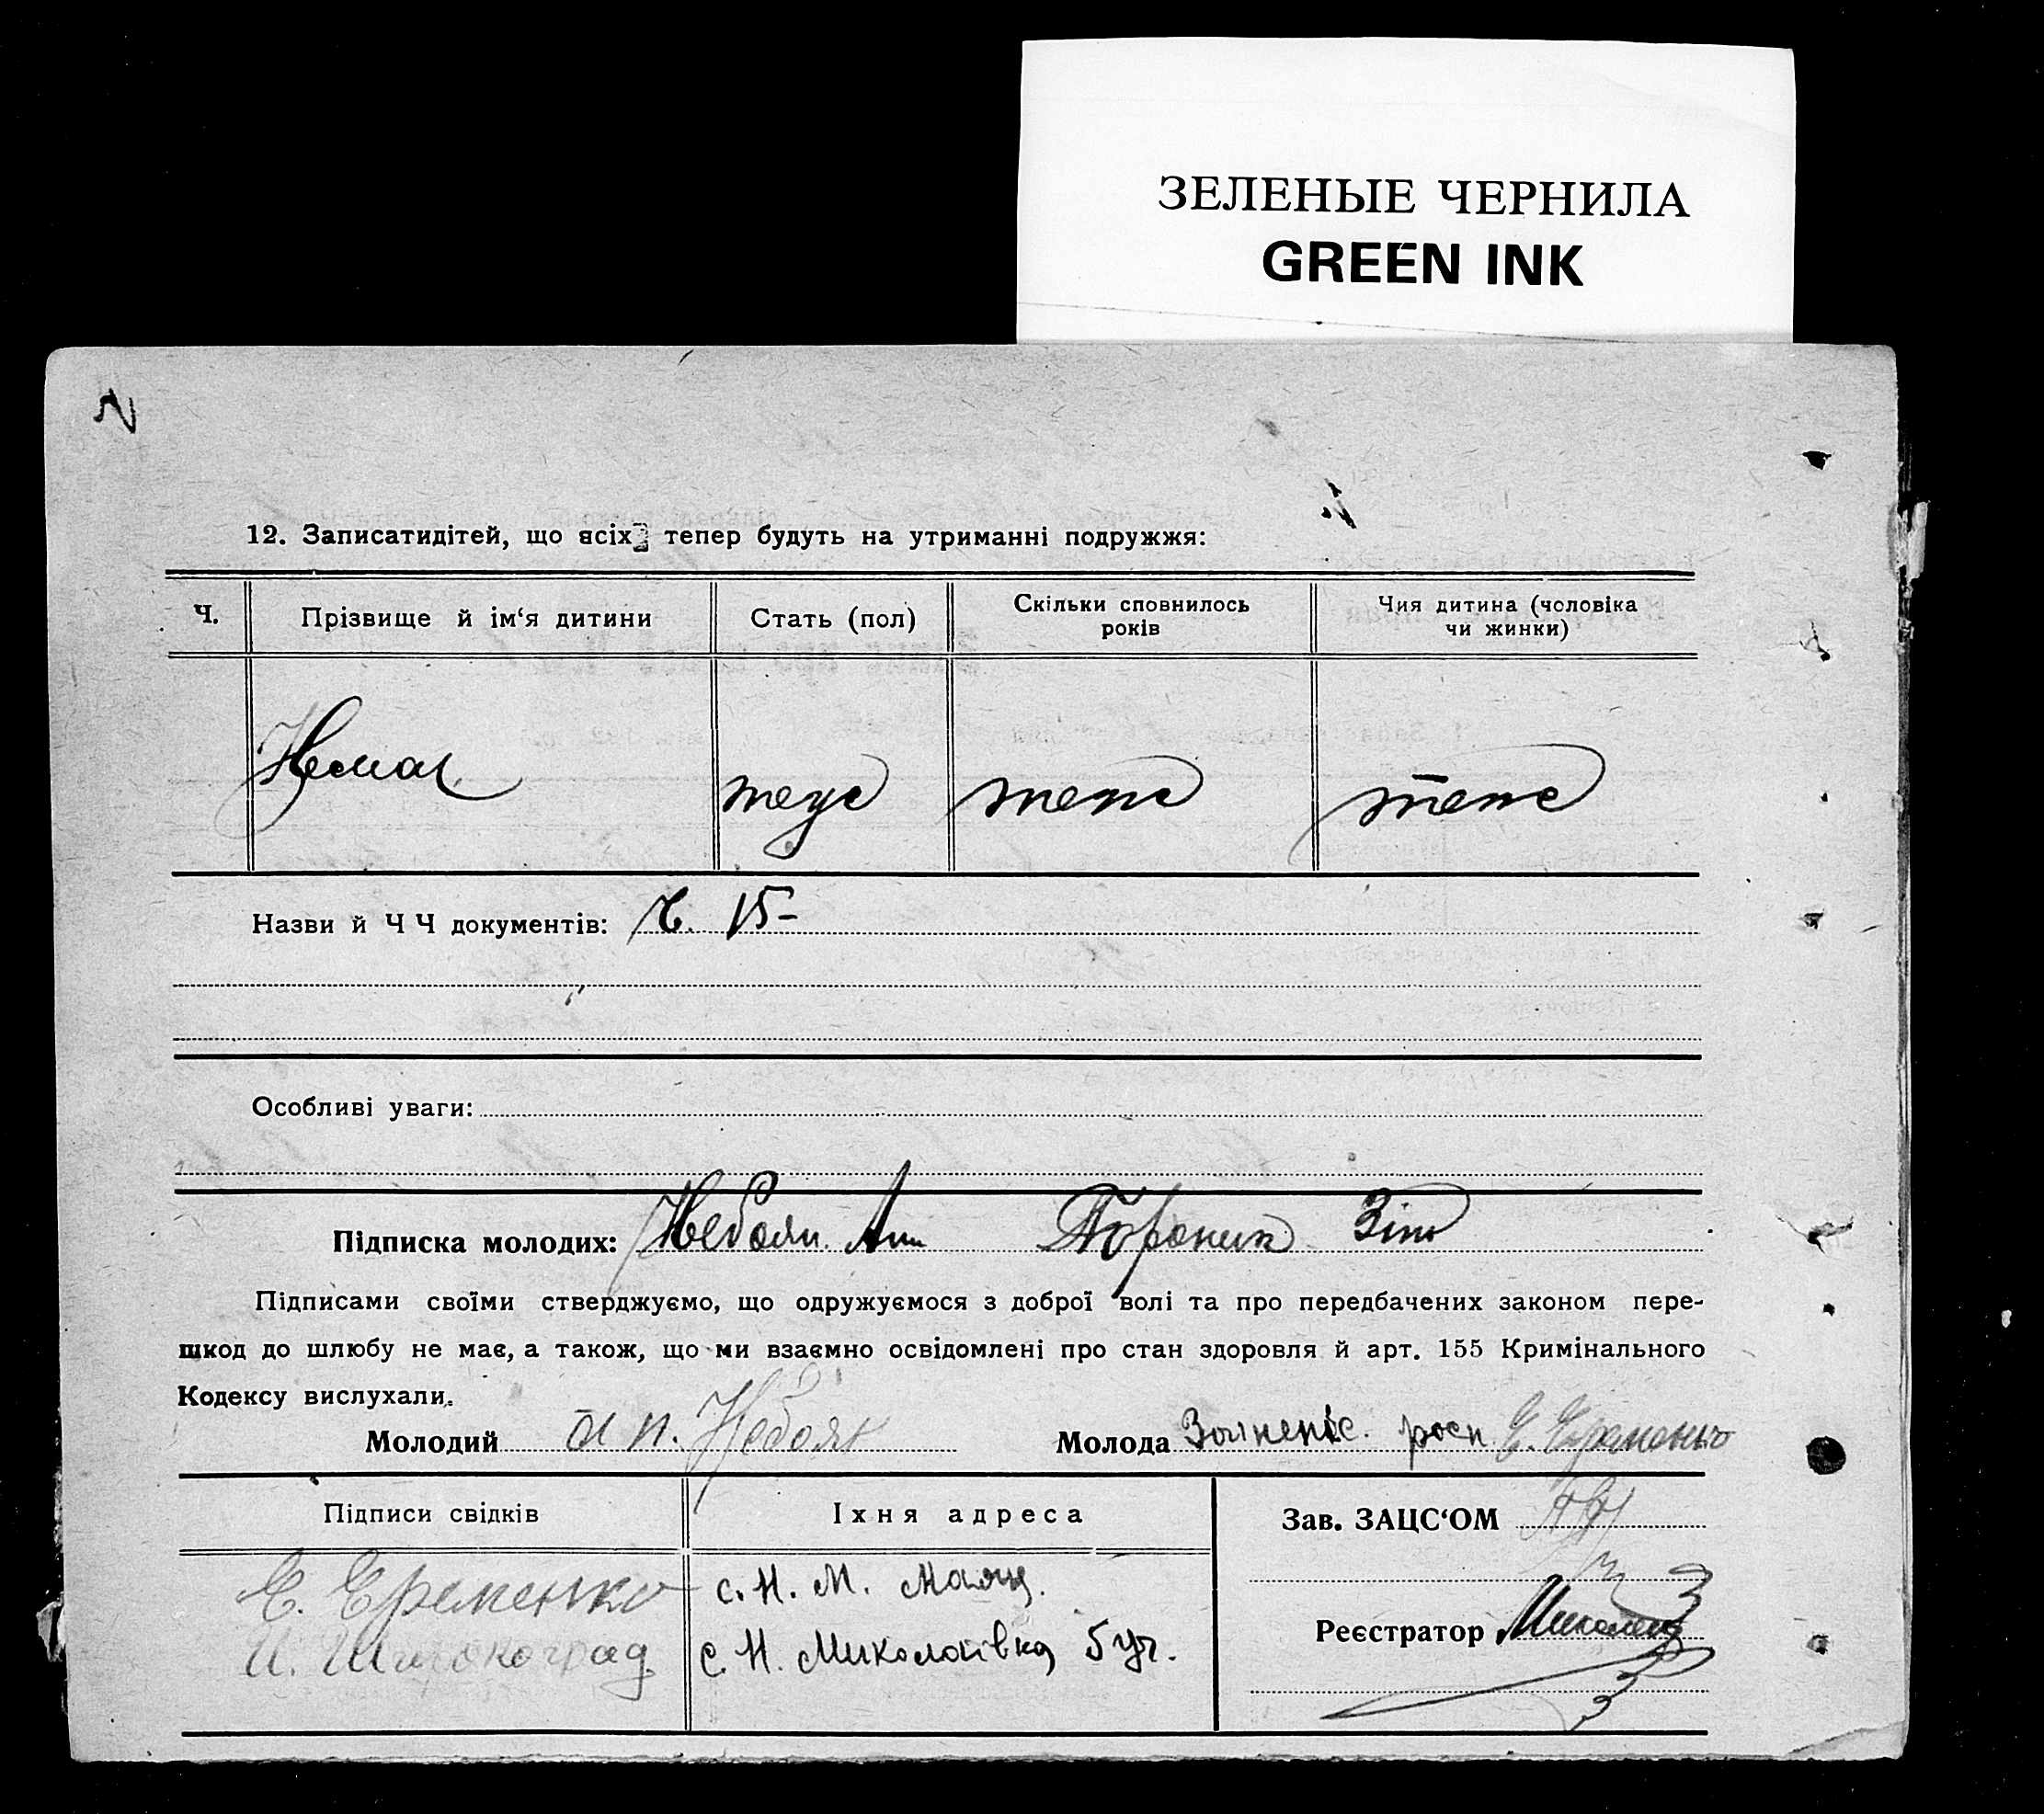 ЗЕЛЕНЫЕ ЧЕРНИЛА
GREEN INK
12. Записатидітей, що всіх тепер будуть на утриманні подружжя:
Ч. Прізвище й ім‘я дитини Стать (пол) Скільки сповнилось років Чия дитина (чоловіка чи жинки)
Немає теж теж теж
Назви й Ч Ч документів: 15-
Особливі уваги:
Підписка молодих:
Підписами своїми стверджуємо, що одружуємося з доброї волі та про передбачених законом пере-
шкод до шлюбу не має, а також, що ми взаємно освідомлені про стан здоровля й арт. 155 Кримінального
Кодексу вислухали.
Молодий Молода росп. Е. Еременко
Підписи свідків Іхня адреса Зав. ЗАЦС‘ОМ
Е. Еременко с. Н. М. Маяц.
И. Широкоград с. Н. Миколаївка 5 уч.
Реєстратор